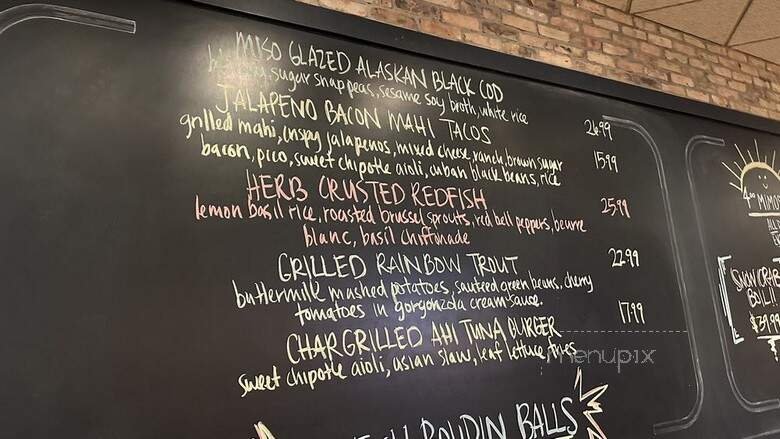 MISO GLAZED ALASKAN BLACK COD
sugar snap peas, sesame soy broth, white rice
26.99
JALAPENO BACON MAHI TACOS
grilled mahi, crispy jalapenos, mixed cheese, ranch, brown sugar
15.99
bacon, pico, sweet chipotle aioli, cuban black beans, rice
HERB CRUSTED REDFISH
25.99
lemon basil rice, roasted brussel sprouts, red bell peppers, beurre
blanc, basil chiffonade
GRILLED RAINBOW TROUT
22.99
buttermilk mashed potatoes, sauteed green beans, cherry
tomatoes in gorgonzola cream sauce.
CHARGRILLED AHI TUNA BURGER
17.99
sweet chipotle aioli, asian slaw, leaf lettuce, fries
BOUDIN BALLS
SNOW CRAB
BOIL!!
$39.99
menupix